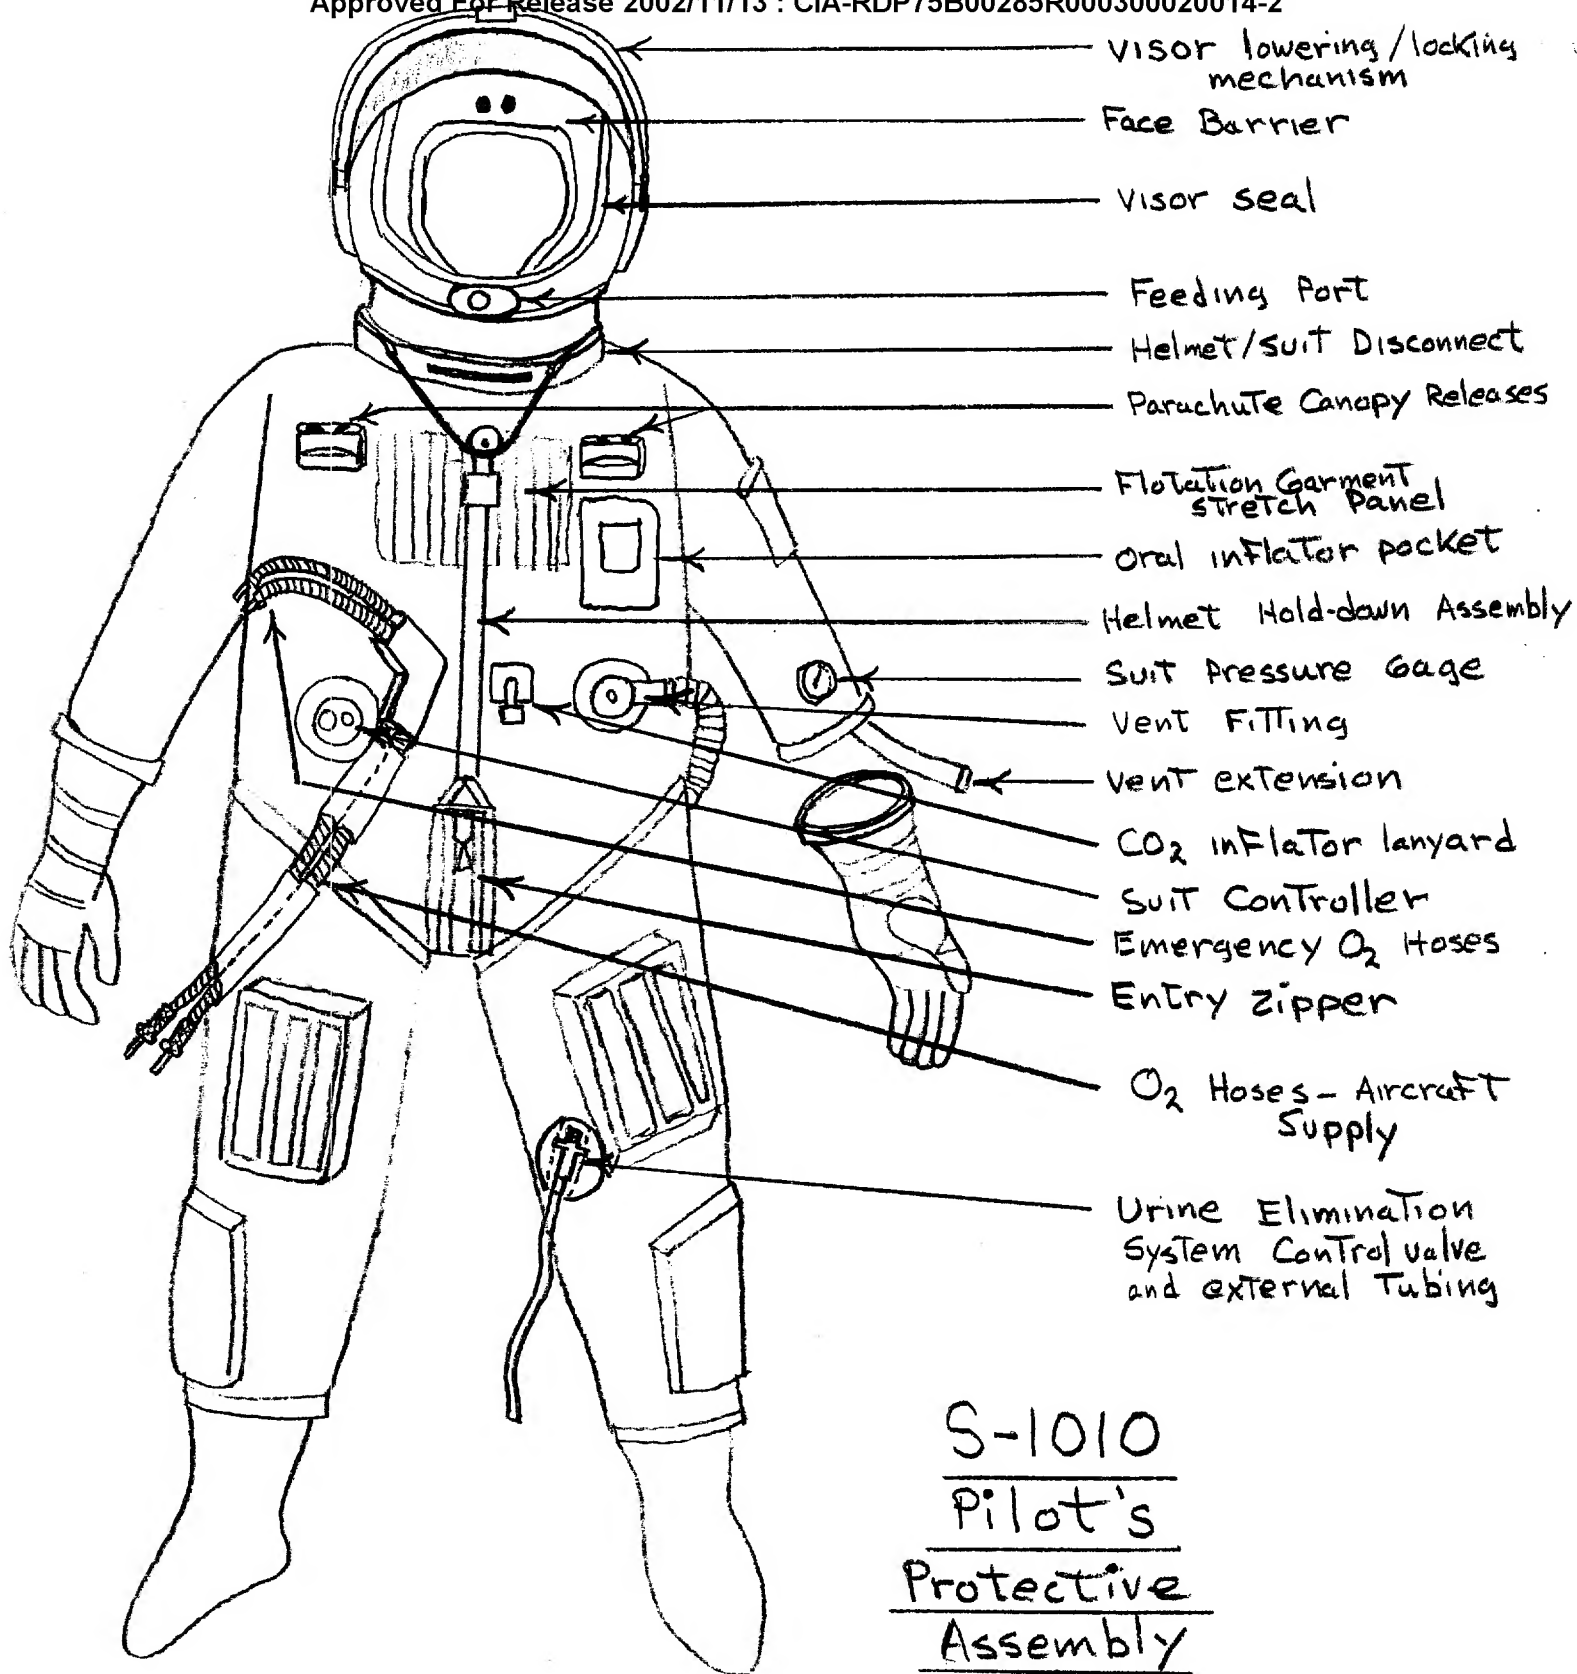 Approved For Release 2002/11/13 : CIA-RDP75B00285R000300020014-2
Visor lowering/locking
mechanism
Face Barrier
Visor seal
Feeding Port
Helmet/Suit Disconnect
Parachute Canopy Releases
Flotation Garment
stretch Panel
oral inflator pocket
Helmet Hold-down Assembly
Suit Pressure Gage
Vent Fitting
Vent extension
CO2 inflator lanyard
Suit Controller
Emergency O2 Hoses
Entry zipper
O2 Hoses - Aircraft
Supply
Urine Elimination
System Control valve
and external Tubing
S-1010
Pilot's
Protective
Assembly